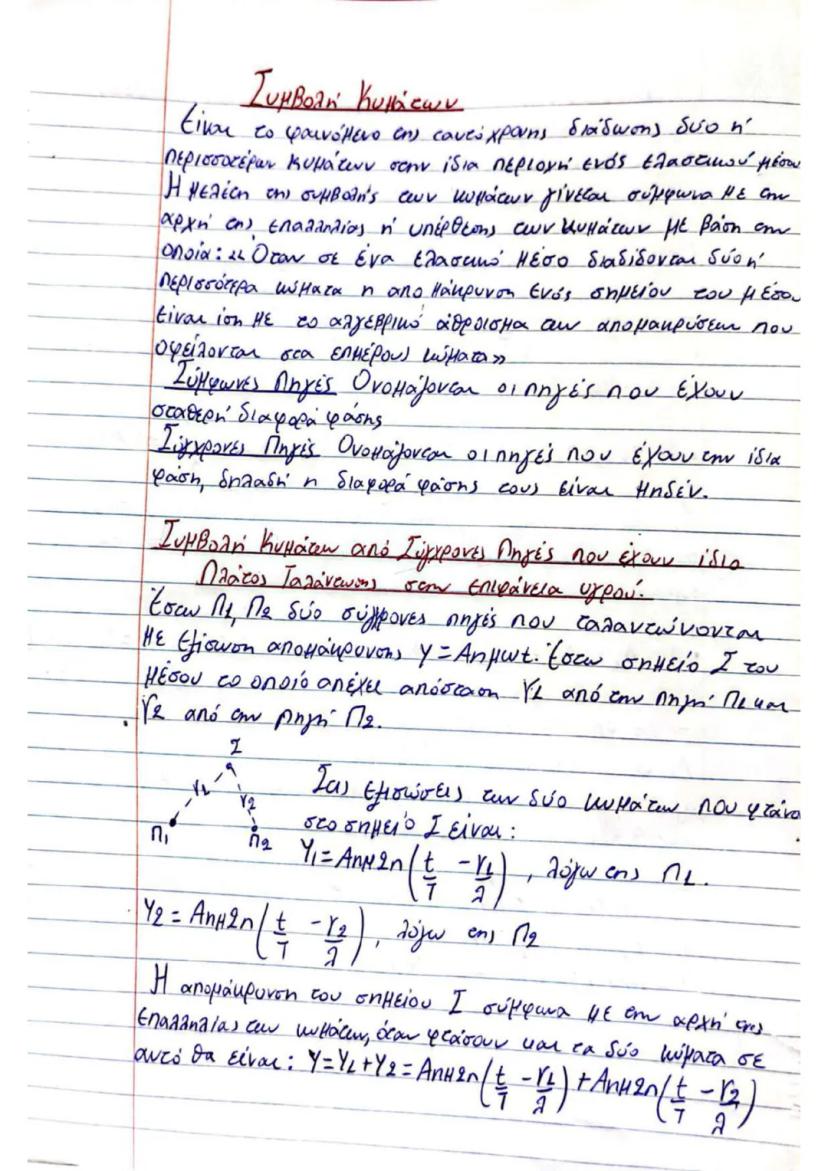 Συμβολή Κυμάτων
Είναι το φαινόμενο της ταυτόχρονης διάδωσης δύο ή
περισσοτέρων κυμάτων στην ίδια περιοχή ενός ελαστικού μέσου
Η μελέτη της συμβολής των κυμάτων γίνεται σύμφωνα με την
αρχή της επαλληλίας ή υπέρθεσης των κυμάτων με βάση την
οποία: «Όταν σε ένα ελαστικό μέσο διαδίδονται δύο ή
περισσότερα κύματα η απομάκρυνση ενός σημείου του μέσου
είναι ίση με το αλγεβρικό άθροισμα των απομακρύσεων που
οφείλονται στα επιμέρους κύματα»
Σύμφωνες Πηγές Ονομάζονται οι πηγές που έχουν
σταθερή διαφορά φάσης
Σύγχρονες Πηγές Ονομάζονται οι πηγές που έχουν την ίδια
φάση, δηλαδή η διαφορά φάσης τους είναι μηδέν.
Συμβολή Κυμάτων από Σύγχρονες Πηγές που έχουν ίδιο
Πλάτος Ταλάντωσης στην επιφάνεια υγρού.
Έστω Π1, Π2 δύο σύγχρονες πηγές που ταλαντώνονται
με εξίσωση απομάκρυνσης y = Aημωt. Έστω σημείο Σ του
μέσου το οποίο απέχει απόσταση r1 από την πηγή Π1 και
r2 από την πηγή Π2.
Σ
r1 r2
Π1 Π2
Στις εξισώσεις των δύο κυμάτων που φτάνο
στο σημείο Σ είναι:
Y1 = Aημ2π(t/T - r1/λ), λόγω της Π1.
Y2 = Aημ2π(t/T - r2/λ), λόγω της Π2
Η απομάκρυνση του σημείου Σ σύμφωνα με την αρχή της
επαλληλίας των κυμάτων, όταν φτάσουν και τα δύο κύματα σε
αυτό θα είναι: Y = Y1 + Y2 = Aημ2π(t/T - r1/λ) + Aημ2π(t/T - r2/λ)